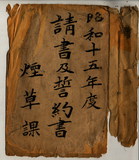 昭和十五年度
請書及誓約書
煙草課